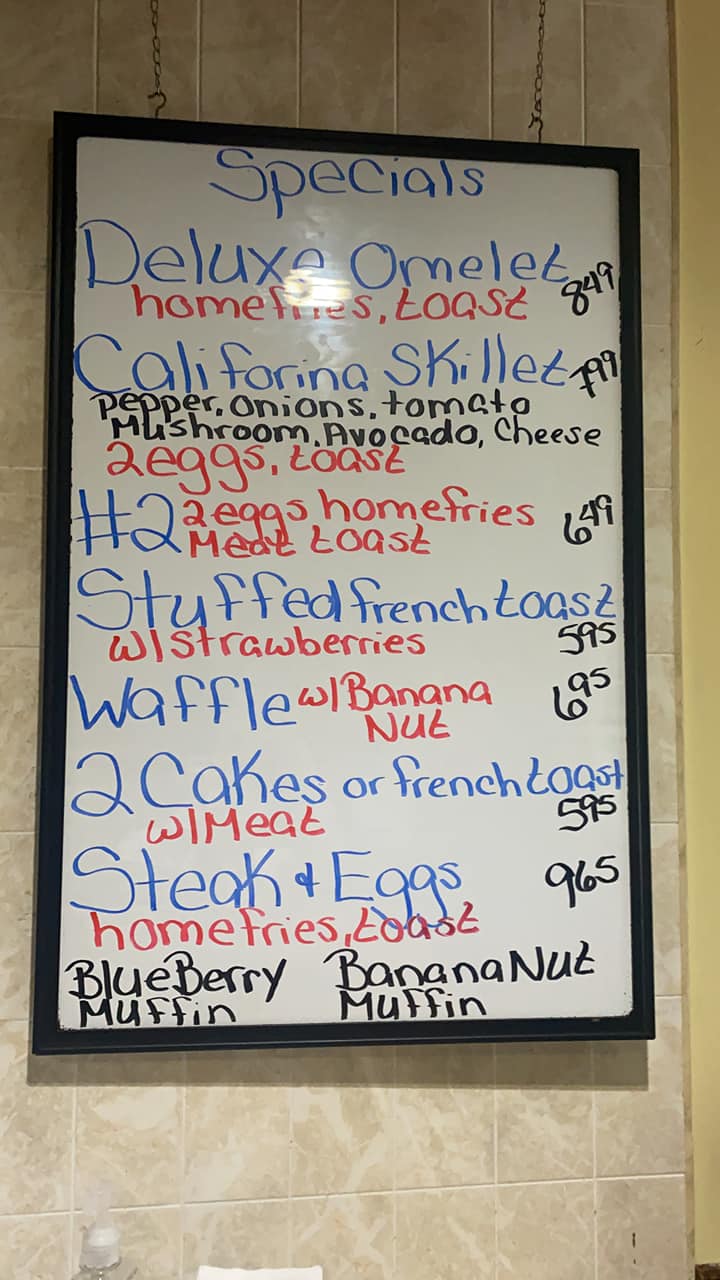 Specials
Deluxe Omelet 849
homefries, toast
Califorina Skillet 799
Pepper, Onions, tomato
Mushroom, Avocado, Cheese
2eggs, toast
#2 2eggs homefries 649
Meat toast
Stuffed french toast
w/strawberries 595
Waffle w/Banana 695
Nut
2 Cakes or french toast
w/Meat 595
Steak & Eggs 965
homefries, toast
BlueBerry BananaNut
Muffin Muffin